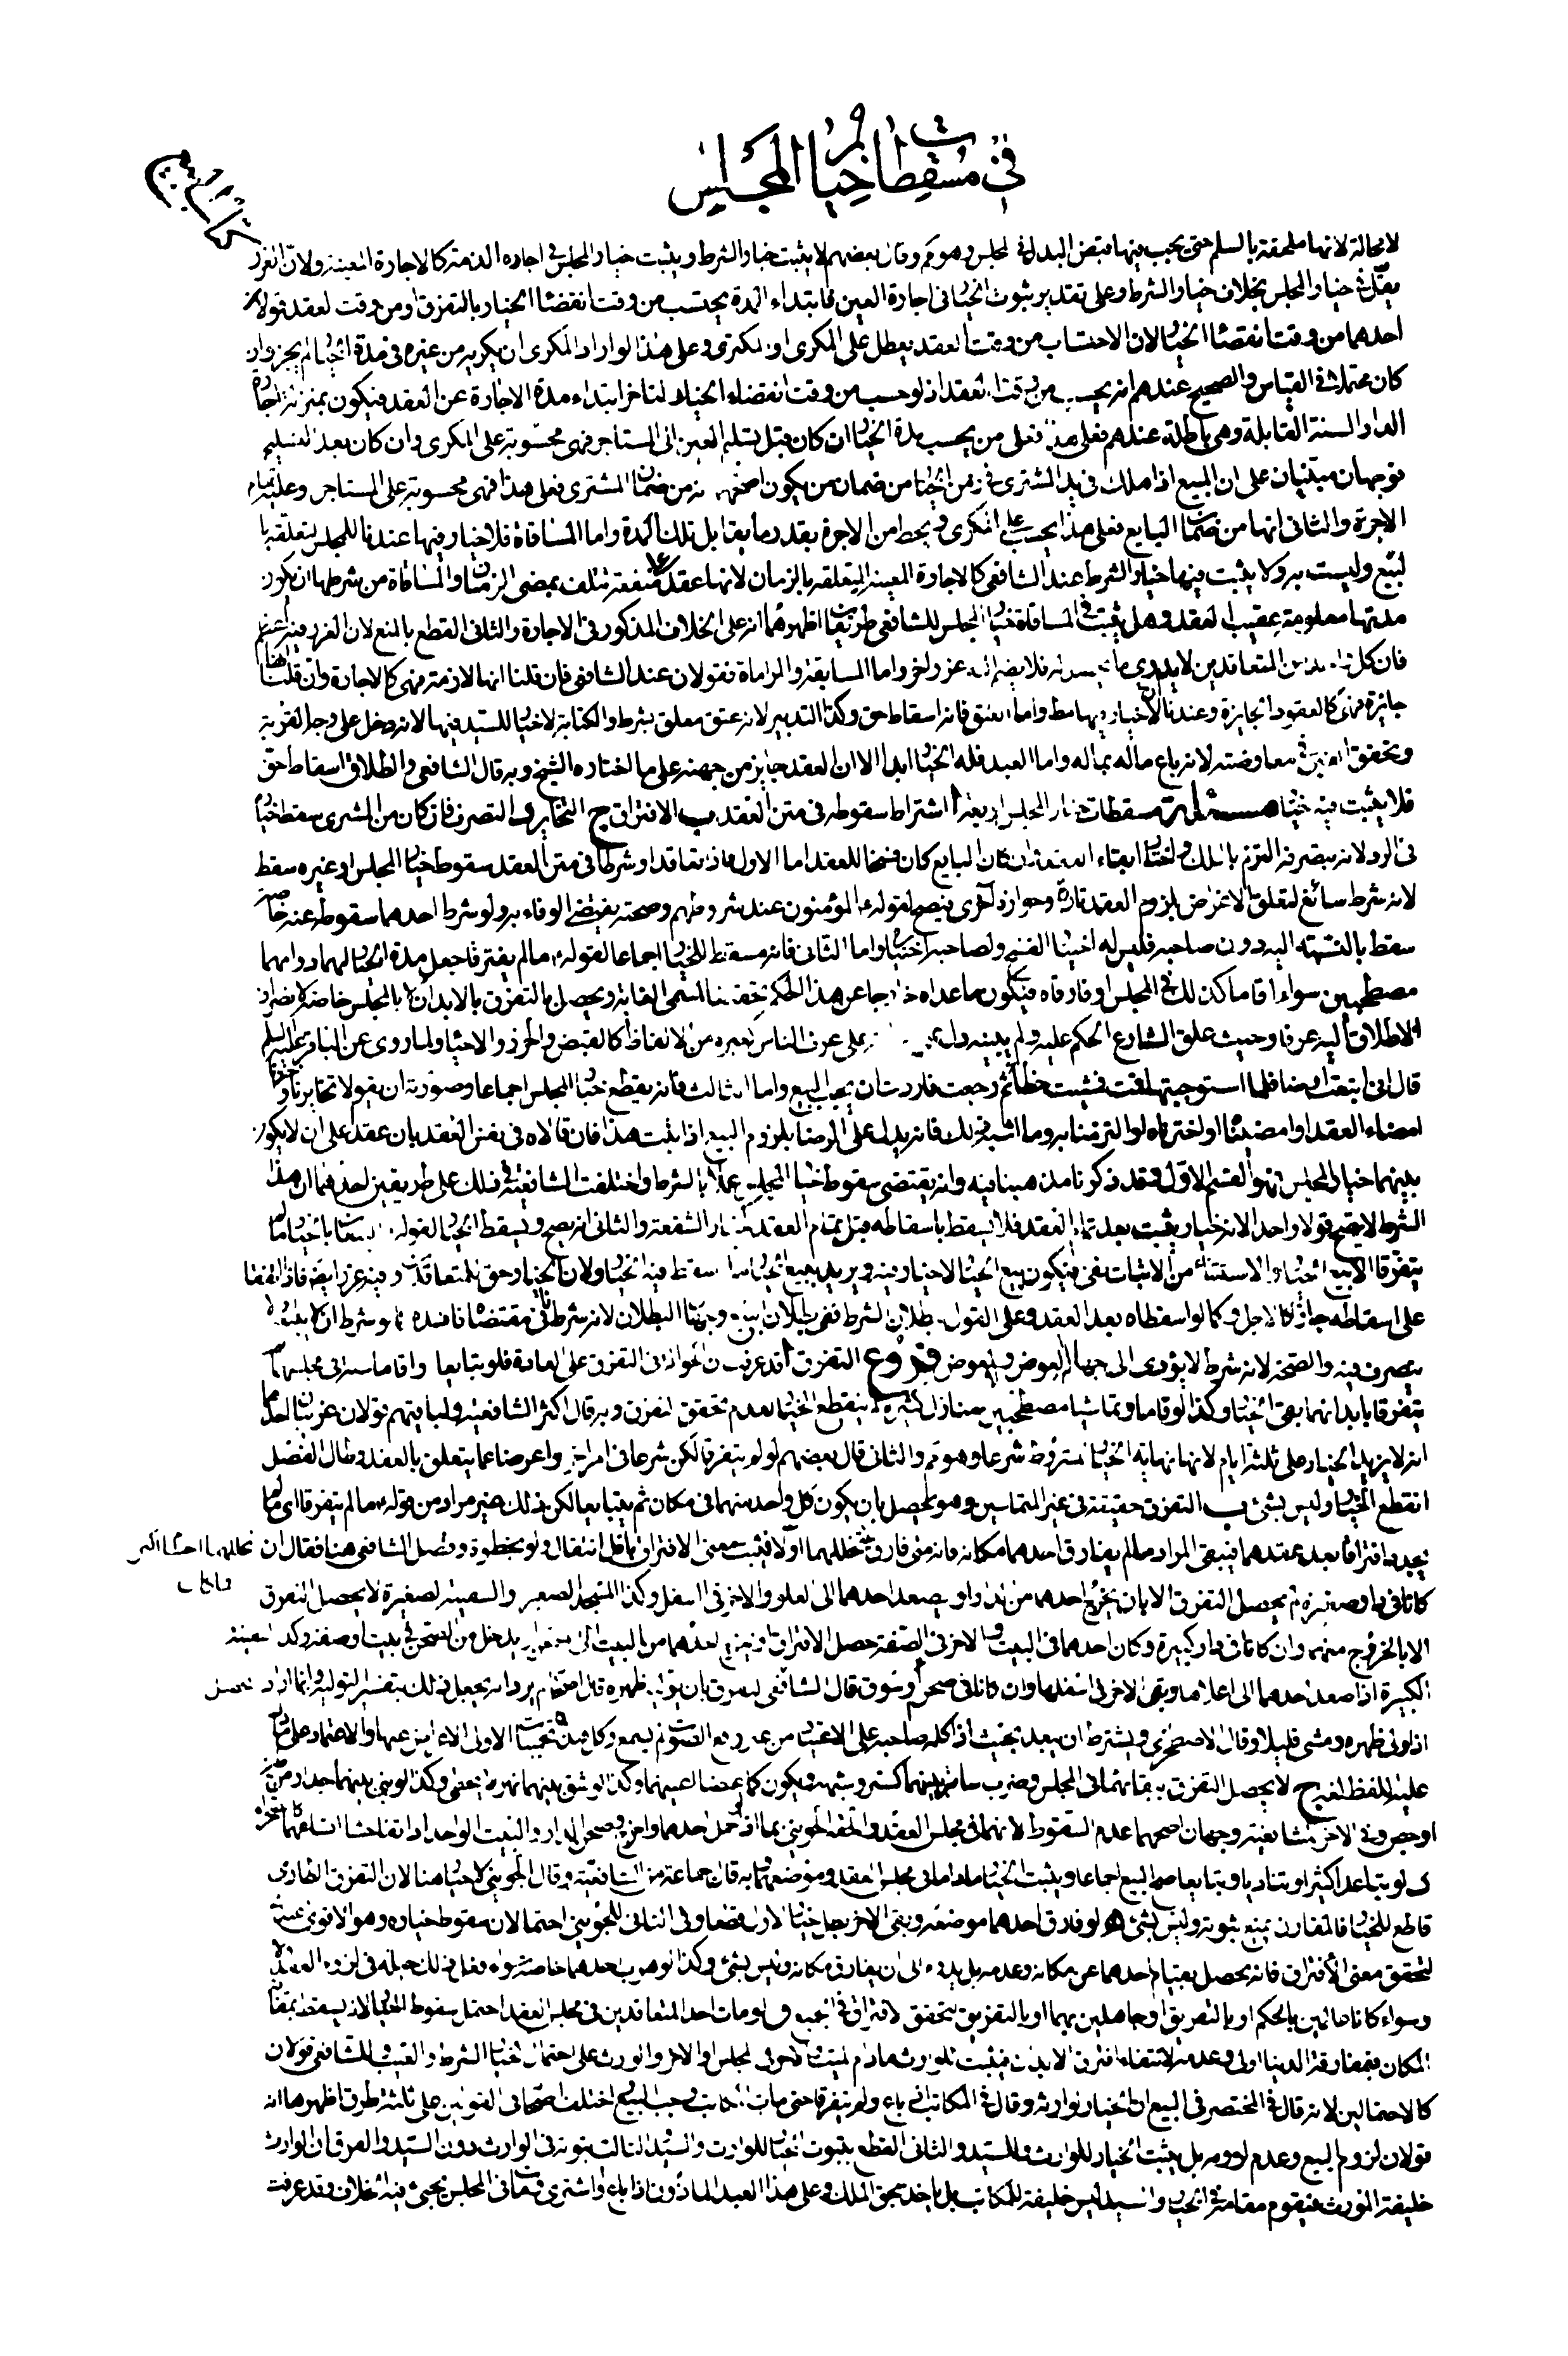 في مسقطات خيار المجلس
لا محالة لانها ملحقة بالسلم حتى يجب فيها قبض البدل في المجلس وهو كم وقال بعضهم لا يثبت خيار الشرط ويثبت خيار المجلس في اجارة الذمة كالاجارة المعينة ولان الغرر
يقل في خيار المجلس بخلاف خيار الشرط وعلى تقدير ثبوت الخيار في اجارة العين فابتداء المدة يحتسب من وقت انقضاء الخيار بالتفرق او من وقت العقد قولان
احدهما من وقت انقضاء الخيار لان الاحتساب من وقت العقد يعطل على المكرى او المكترى وعلى هذا لو اراد المكرى ان يكريه من غيره في مدة الخيار لم يجز وان
كان محتملا في القياس والصحيح عندهم انه يحسب من وقت العقد اذ لو حسب من وقت انقضاء الخيار لتاخر ابتداء مدة الاجارة عن العقد فيكون بمنزلة اجارة
الدار السنة القابلة وهي باطلة عندهم فعلى هذا فعلى من يحسب مدة الخيار ان كان قبل تسليم العين الى المستاجر فهي محسوبة على المكرى وان كان بعد التسليم
فوجهان مبنيان على ان المبيع اذا هلك في يد المشترى في زمن الخيار من ضمان من يكون اصحهما انه من ضمان المشترى فعلى هذا فهى محسوبة على المستاجر وعليه تمام
الاجرة والثانى انها من ضمان البايع فعلى هذا يحسب على المكرى ويحط من الاجرة بقدر ما يقابل تلك المدة واما المساقاة فلا خيار فيها عندنا للمجلس لتعلقه با
لبيع وليست به ولا يثبت فيها خيار الشرط عند الشافعى كالاجارة المعينة المتعلقة بالزمان لانها عقد على منفعة تتلف بمضى الزمان والمساقاة من شرطها ان يكون
مدتها معلومة عقيب العقد وهل يثبت في المساقاة خيار المجلس للشافعى طريقان اظهرهما انه على الخلاف المذكور في الاجارة والثانى القطع بالمنع لان الغرر فيه اعظم
فان كل واحد من المتعاقدين لا يدرى ما يحصل له فلا يضم اليه غرر اخر واما المسابقة والمراماة فقولان عند الشافعى فان قلنا انها لازمة فهى كالاجارة وان قلنا انها
جائزة فهى كالعقود الجايزة وعندنا لا خيار فيهما مط واما العتق فانه اسقاط حق وكذا التدبير لانه عتق معلق بشرط والكتابة لا خيار للسيد فيها لانه دخل على وجه القربة
وتحقق الغبن في معاوضته لانه باع ماله بماله واما العبد فله الخيار ابدا الا ان العقد جايز من جهته على ما اختاره الشيخ وبه قال الشافعى والطلاق اسقاط حق
فلا يثبت فيه خيار مسئلة مسقطات خيار المجلس اربعة ا اشتراط سقوطه في متن العقد ب الافتراق ج التخاير د التصرف فان كان من المشترى سقط خياره
في الرد لانه بتصرفه التزم بالملك واختار ابقاء العقد وان كان البايع كان فسخا للعقد اما الاول فاذا تعاقدا وشرطا في متن العقد سقوط خيار المجلس او غيره سقط
لانه شرط سائغ لتعلق الاغراض بلزوم العقد تارة وجوازه اخرى فيصح لقوله ع المؤمنون عند شروطهم وصحته يقتضى الوفاء به ولو شرط احدهما سقوطه عنه خاصة
سقط بالنسبة اليه دون صاحبه فليس له اختيار الفسخ ولصاحبه اختياره واما الثانى فانه مسقط للخيار اجماعا لقوله ع ما لم يفترقا جعل مدة الخيار لهما دوامهما
مصطحبين سواء اقاما كذلك في المجلس او فارقاه فيكون ما عداه خارجا عن هذا الحكم تحقيقا لمسمى الغاية ويحصل بالتفرق بالابدان لا بالمجلس خاصة لانصراف
الاطلاق اليه عرفا وحيث علق الشارع الحكم عليه ولم يبينه دل على عرف الناس كغيره من الالفاظ كالقبض والحرز والاحياء ولما روى عن الباقر عليه السلم
قال انى ابتعت ارضا فلما استوجبتها قمت فمشيت خطا ثم رجعت فاردت ان يجب البيع واما الثالث فانه يقطع خيار المجلس اجماعا وصورته ان يقولا تخايرنا او اخترنا
امضاء العقد او امضيناه او اخترناه او التزمنا به وما اشبه ذلك فانه يدل على الرضا بلزوم البيع اذا ثبت هذا فان قالاه في نفس العقد بان عقدا على ان لا يكون
بينهما خيار المجلس فهو القسم الاول وقد ذكرنا مذهبنا فيه وانه يقتضى سقوط خيار المجلس عملا بالشرط واختلفت الشافعية في ذلك على طريقين احدهما ان هذا
الشرط لا يصح قولا واحدا لانه خيار يثبت بعد تمام العقد فلا يسقط باسقاطه قبل تمام العقد كخيار الشفعة والثانى انه يصح ويسقط الخيار لقوله البيعان بالخيار ما لم
يتفرقا الا بيع الخيار والاستثناء من الاثبات نفى فيكون بيع الخيار لا خيار فيه ويريد ببيع الخيار ما اسقط فيه الخيار ولان الخيار حق للمتعاقدين وفيه غرر ايضا فاذا اتفقا
على اسقاطه جاز كالاجل وكما لو اسقطاه بعد العقد وعلى القول ببطلان الشرط ففى بطلان البيع وجهان البطلان لانه شرط نافى مقتضاه فافسده كما لو شرط ان لا يسلمه ولا
يتصرف فيه والصحة لانه شرط لا يؤدى الى جهالة العوض والمعوض فروع التفرق ا قد عرفت ان الحوالة في التفرق على العادة فلو تبايعا واقاما سنة في مجلسهما لم
يتفرقا بابدانهما بقى الخيار وكذا لو قاما وتماشيا مصطحبين منازل كثيرة لم ينقطع الخيار لعدم تحقق التفرق وبه قال اكثر الشافعية ولباقيهم قولان غريبان احدهما
انه لا يزيد الخيار على ثلثة ايام لانها نهاية الخيار المشروط شرعا وهو كم والثانى قال بعضهم لو لم يتفرقا لكن شرعا في امر اخر واعرضا عما يتعلق بالعقد وطال الفصل
انقطع الخيار وليس بشئ ب التفرق حقيقة في غير المتماسين وهو يحصل بان يكون كل واحد منهما في مكان ثم يتبايعا لكن ذلك غير مراد من قوله ع ما لم يتفرقا اى ما لم
يجددا افتراقا بعد عقدهما فيبقى المراد ما لم يفارق احدهما مكانه فانه متى فارقه تخللهما اولا فيثبت معنى الافتراق باقل انتقال ولو بخطوة وفصل الشافعى هنا فقال ان
كانا في دار صغيرة لم يحصل التفرق الا بان يخرج احدهما من الدار او يصعد احدهما الى العلو والاخر في اسفل وكذا المسجد الصغير والسفينة الصغيرة لا يحصل التفرق
الا بالخروج منهم وان كانا في دار كبيرة وكان احدهما في البيت والاخر في الصفة حصل الافتراق او يخرج احدهما من البيت الى الصحن او يدخل من الصحن في بيت او صفة وكذا السفينة
الكبيرة اذا صعد احدهما الى اعلاها وبقى الاخر في اسفلها وان كانا في صحراء او سوق قال الشافعى التفرق بان يولى ظهره قال اصحابه لم يرد انه يحصل ذلك بتفسير التولية وانما اراد يحصل
اذا ولى ظهره ومشى قليلا وقال الاصطخرى ويشترط ان يبعد بحيث اذا كلم صاحبه على الاعتياد من غير رفع الصوت لم يسمع
لا يحصل التفرق ببقائهما في المجلس وضرب ساتر بينهما كستر وشبهه وكذا لو شق بينهما نهر وكذا لو بنى بينهما جدار
لو تباعدا كثيرا وتناديا وتبايعا صح البيع اجماعا ويثبت الخيار ما داما في مجلس العقد وموضعهما وبه قال جماعة من الشافعية وقال الجوينى لا خيار هنا لان التفرق الطارى
قاطع للخيار فالمقارن يمنع ثبوته وليس بشئ ه لو فارق احدهما موضعه وبقى الاخر بطل خيار الاول قطعا وفى الثانى للجوينى احتمالان سقوط خياره وهو الاقوى عندى
لتحقق معنى الافتراق فانه يحصل بقيام احدهما عن مكانه
وسواء كانا عالمين بالحكم او بالتفريق او جاهلين بهما او بالتفريق لتحقق الافتراق في الجميع و لو مات احد المتعاقدين في مجلس العقد احتمل سقوط الخيار لانه يسقط بمفارقة
المكان فبمفارقة الدنيا اولى وعدمه لانتفاء افتراق الابدان فيثبت للوارث وللشافعى قولان
كالاحتمالين لانه قال في المختصر في البيع ان الخيار لوارثه وقال في المكاتب اذا باع ولم يتفرقا حتى مات المكاتب وجب البيع اختلف اصحابه في القولين على ثلثة طرق اظهرها انه
قولان لزوم البيع وعدم لزومه بل يثبت الخيار للوارث والسيد والثانى القطع بثبوت الخيار للوارث والسيد الثالث ثبوته في الوارث دون السيد والفرق ان الوارث
خليفة المورث فيقوم مقامه في الخيار والسيد ليس خليفة للمكاتب بل ياخذ بحق الملك وعلى هذا العبد الماذون اذا باع او اشترى ومات في المجلس يجئ فيه الخلاف وقد عرفت